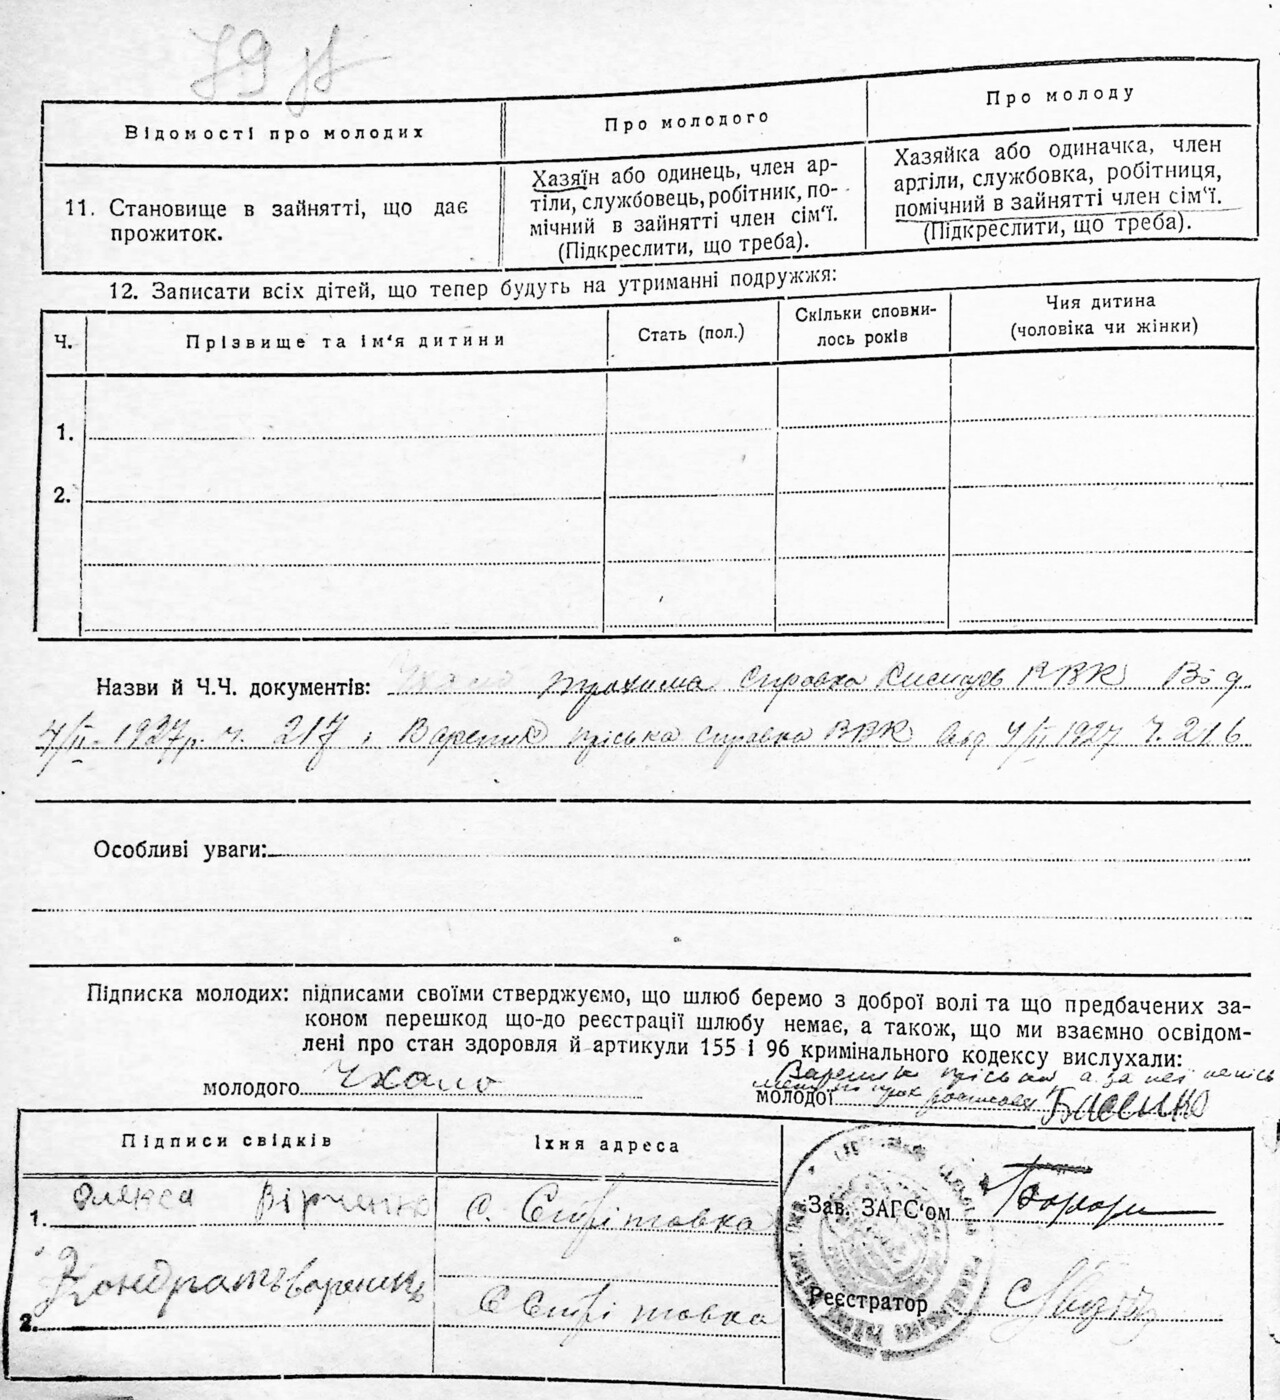 Відомості про молодих
Про молодого
Про молоду
11. Становище в зайнятті, що дає
прожиток.
Хазяїн або одинець, член ар-
тіли, службовець, робітник, по-
мічний в зайнятті член сім'ї.
(Підкреслити, що треба).
Хазяйка або одиначка, член
артіли, службовка, робітниця,
помічний в зайнятті член сім'ї.
(Підкреслити, що треба).
12. Записати всіх дітей, що тепер будуть на утриманні подружжя:
Ч.
Прізвище та ім'я дитини
Стать (пол.)
Скільки сповни-
лось років
Чия дитина
(чоловіка чи жінки)
1.
2.
Назви й Ч.Ч. документів: Ухало Трохима Справка РВК Від
4/II 1927 р. ч. 217 і Вареник Пріська справка РВК від 4/II 1927 Ч. 216
Особливі уваги:
Підписка молодих: підписами своїми стверджуємо, що шлюб беремо з доброї волі та що предбачених за-
коном перешкод що-до реєстрації шлюбу немає, а також, що ми взаємно освідом-
лені про стан здоровля й артикули 155 і 96 кримінального кодексу вислухали:
молодого Ухало
молодої Вареник Пріська а за неї
Підписи свідків
Їхня адреса
1. Олекса Вірченко
с. Єнрітовка
2. Кондрать Вареник
с Єнрітовка
Зав. ЗАГС'ом
Реєстратор